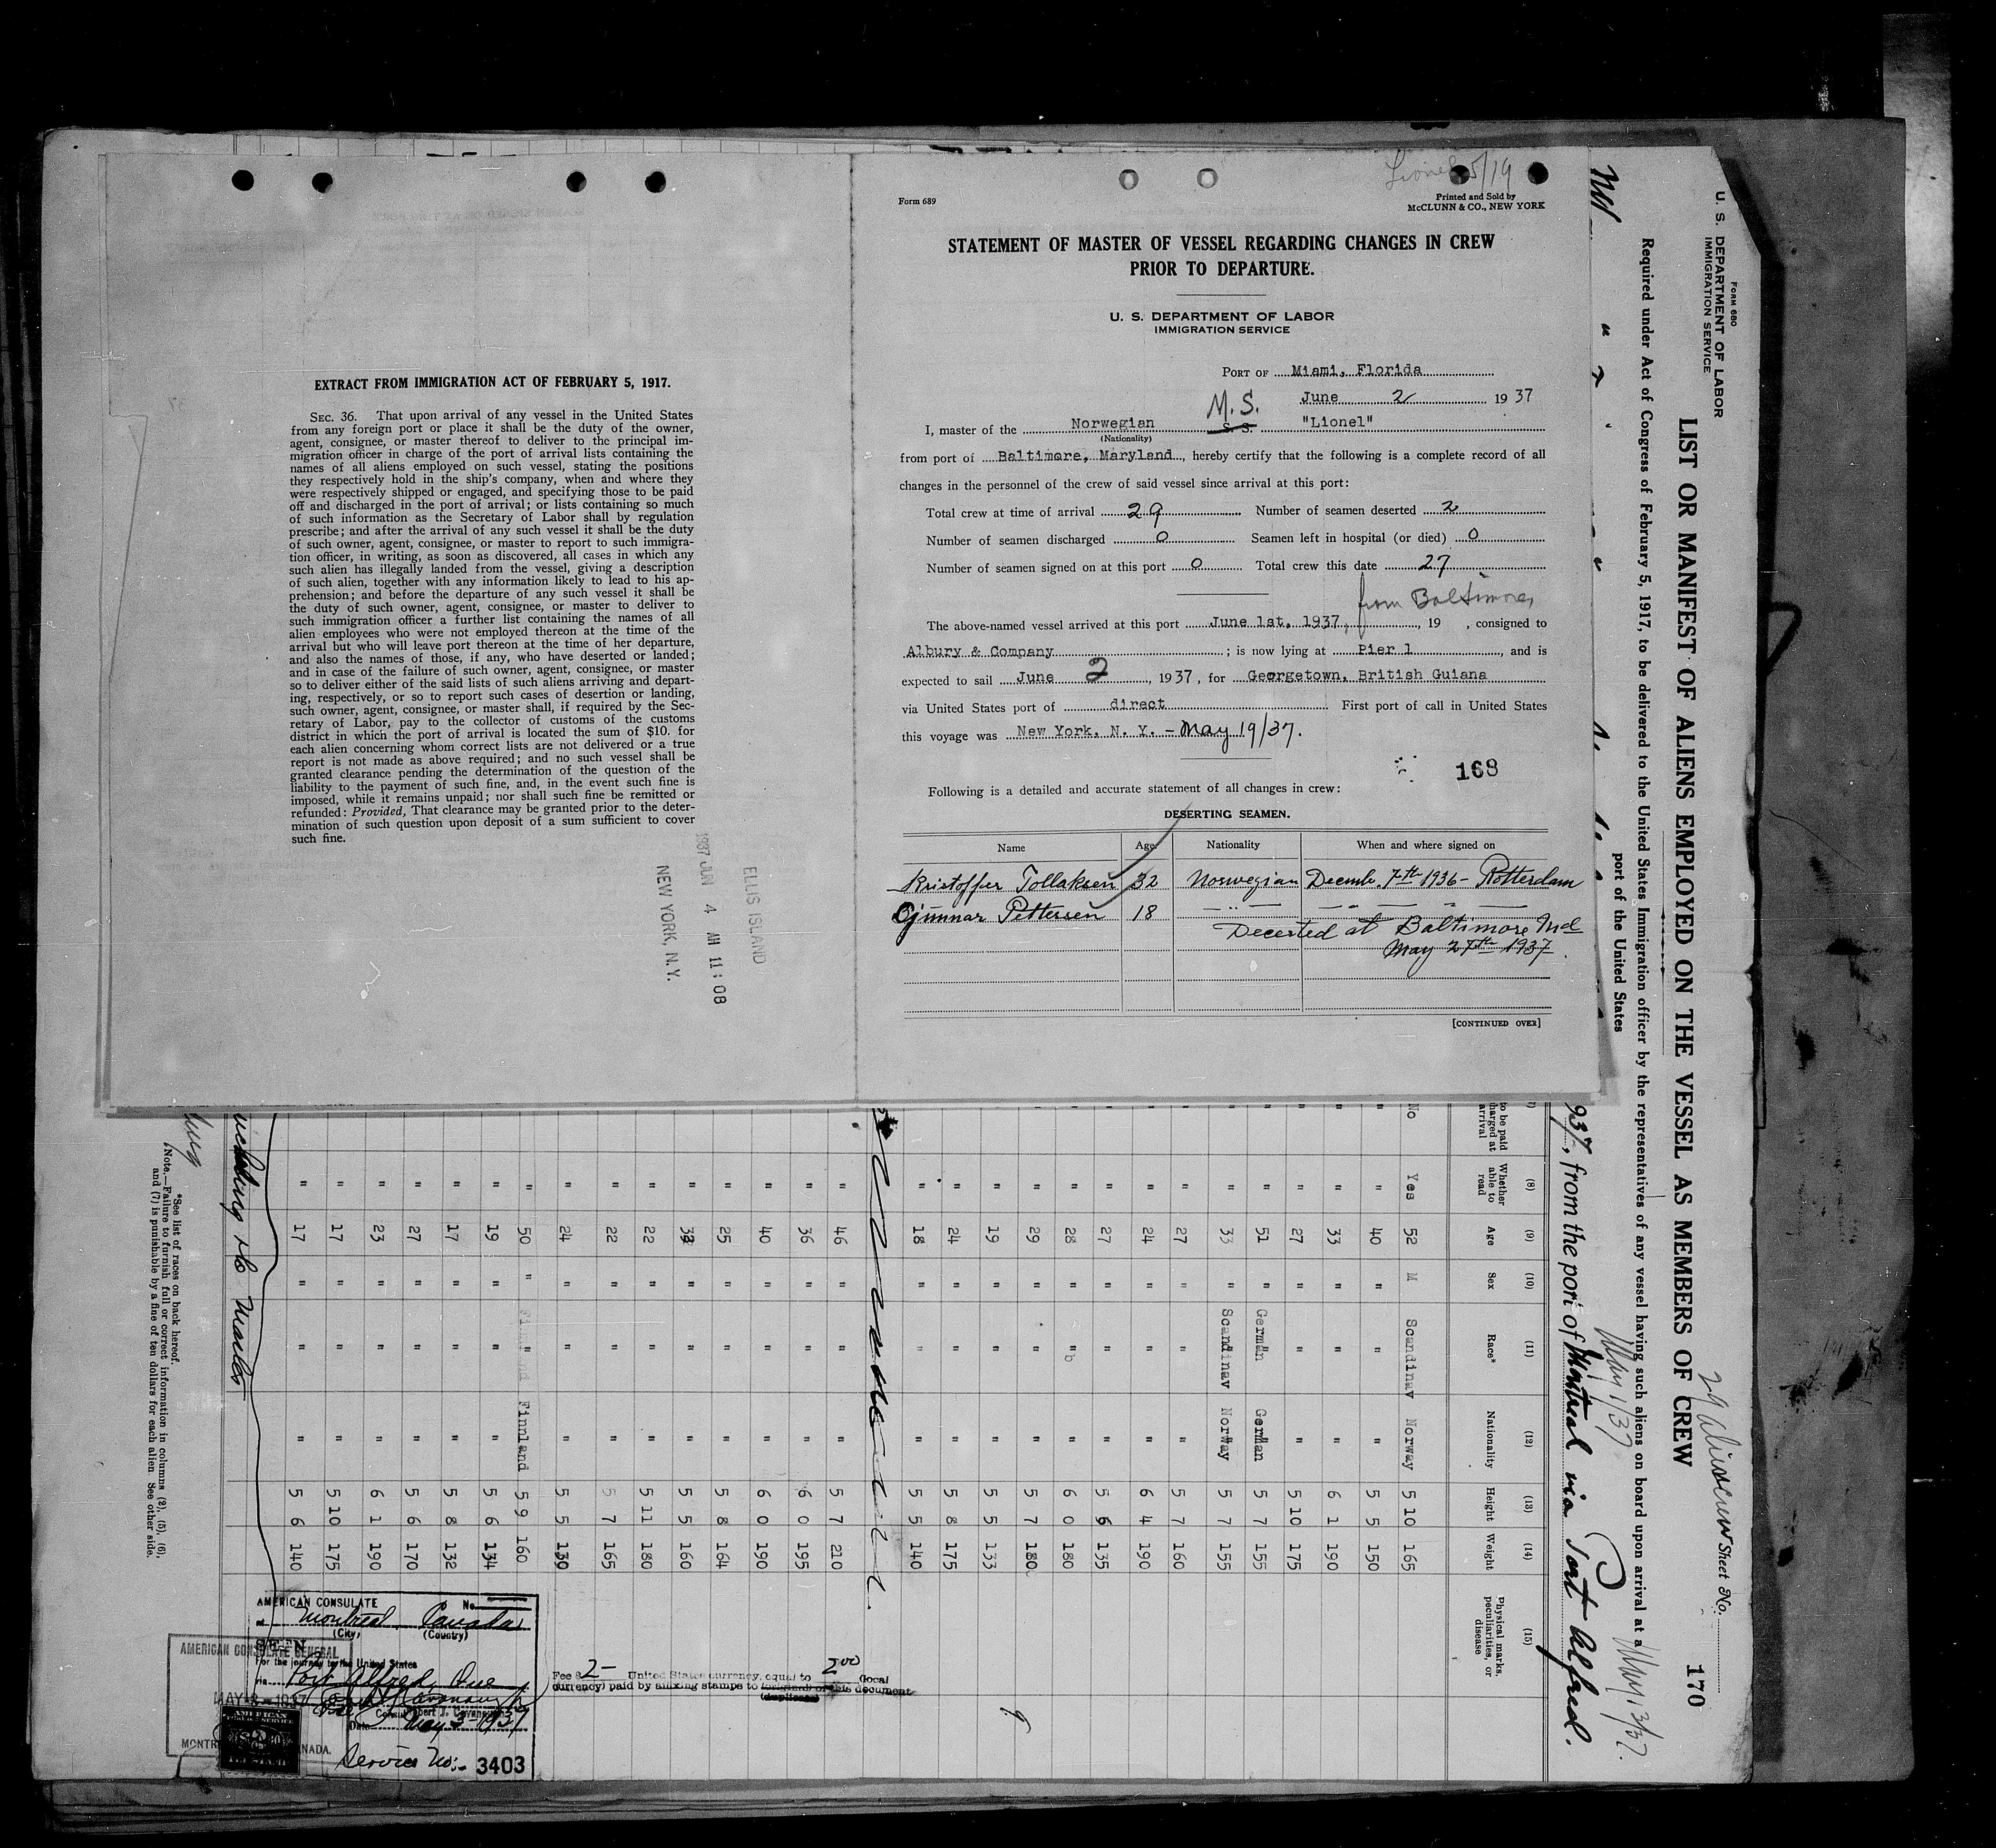 Lionel 5/19
Form 689
Printed and Sold by
McCLUNN & CO., NEW YORK
STATEMENT OF MASTER OF VESSEL REGARDING CHANGES IN CREW
PRIOR TO DEPARTURE.
U. S. DEPARTMENT OF LABOR
IMMIGRATION SERVICE
PORT OF Miami, Florida
June 2 19 37
M. S.
I, master of the Norwegian S. S. "Lionel"
(Nationality)
from port of Baltimore, Maryland, hereby certify that the following is a complete record of all
changes in the personnel of the crew of said vessel since arrival at this port:
Total crew at time of arrival 29 Number of seamen deserted 2
Number of seamen discharged 0 Seamen left in hospital (or died) 0
Number of seamen signed on at this port 0 Total crew this date 27
from Baltimore,
The above-named vessel arrived at this port June 1st, 1937, , 19 , consigned to
Albury & Company ; is now lying at Pier 1 , and is
expected to sail June 2 , 1937, for Georgetown, British Guiana
via United States port of direct First port of call in United States
this voyage was New York, N. Y. - May 19/37.
168
Following is a detailed and accurate statement of all changes in crew:
DESERTING SEAMEN.
Name Age Nationality When and where signed on
Kristoffer Tollaksen 32 Norwegian Decemb. 7th 1936 - Rotterdam
Gjunnar Pettersen 18 — " — — " — — " —
Deserted at Baltimore Md
May 27th 1937.
[CONTINUED OVER]
EXTRACT FROM IMMIGRATION ACT OF FEBRUARY 5, 1917.
SEC. 36. That upon arrival of any vessel in the United States
from any foreign port or place it shall be the duty of the owner,
agent, consignee, or master thereof to deliver to the principal im-
migration officer in charge of the port of arrival lists containing the
names of all aliens employed on such vessel, stating the positions
they respectively hold in the ship's company, when and where they
were respectively shipped or engaged, and specifying those to be paid
off and discharged in the port of arrival; or lists containing so much
of such information as the Secretary of Labor shall by regulation
prescribe; and after the arrival of any such vessel it shall be the duty
of such owner, agent, consignee, or master to report to such immigra-
tion officer, in writing, as soon as discovered, all cases in which any
such alien has illegally landed from the vessel, giving a description
of such alien, together with any information likely to lead to his ap-
prehension; and before the departure of any such vessel it shall be
the duty of such owner, agent, consignee, or master to deliver to
such immigration officer a further list containing the names of all
alien employees who were not employed thereon at the time of the
arrival but who will leave port thereon at the time of her departure,
and also the names of those, if any, who have deserted or landed;
and in case of the failure of such owner, agent, consignee, or master
so to deliver either of the said lists of such aliens arriving and depart-
ing, respectively, or so to report such cases of desertion or landing,
such owner, agent, consignee, or master shall, if required by the Sec-
retary of Labor, pay to the collector of customs of the customs
district in which the port of arrival is located the sum of $10. for
each alien concerning whom correct lists are not delivered or a true
report is not made as above required; and no such vessel shall be
granted clearance pending the determination of the question of the
liability to the payment of such fine, and, in the event such fine is
imposed, while it remains unpaid; nor shall such fine be remitted or
refunded: Provided, That clearance may be granted prior to the deter-
mination of such question upon deposit of a sum sufficient to cover
such fine.
ELLIS ISLAND
1937 JUN 4 AM 11:08
NEW YORK, N.Y.
FORM 680
U. S. DEPARTMENT OF LABOR
IMMIGRATION SERVICE
Sheet No.
170
LIST OR MANIFEST OF ALIENS EMPLOYED ON THE VESSEL AS MEMBERS OF CREW
Required under Act of Congress of February 5, 1917, to be delivered to the United States Immigration officer by the representatives of any vessel having such aliens on board upon arrival at a
port of the United States
May 1/37
May 13/37.
937, from the port of Montreal via Port Alfred.
to be paid
harged at
arrival
(8) Whether able to read
(9) Age
(10) Sex
(11) Race*
(12) Nationality
(13) Height
(14) Weight
(15) Physical marks, peculiarities, or disease
No Yes 52 M Scandinav Norway 5 10 165
" " 40 " " " 5 5 150
" " 33 " " " 6 1 190
" " 27 " " " 5 10 175
" " 51 " German German 5 7 155
" " 33 " Scandinav Norway 5 7 155
" " 27 " " " 5 7 160
" " 24 " " " 6 4 190
" " 27 " " " 5 6 135
" " 28 " " " 6 0 180
" " 29 " " " 5 7 180
" " 19 " " " 5 5 133
" " 24 " " " 5 8 175
" " 18 " " " 5 5 140
" " 46 " " " 5 7 210
" " 36 " " " 6 0 195
" " 40 " " " 6 0 190
" " 25 " " " 5 8 164
" " " " " 5 5 160
" " 22 " " " 5 11 180
" " 22 " " " 5 7 165
" " 24 " " " 5 5 130
" " 50 " Finnland Finnland 5 9 160
" " 19 " " " 5 6 134
" " 17 " " " 5 8 132
" " 27 " " " 5 6 170
" " 23 " " " 6 1 190
" " 17 " " " 5 10 175
" " 17 " " " 5 6 140
*See list of races on back hereof.
Note.—Failure to furnish full or correct information in columns (2), (5), (6),
and (7) is punishable by a fine of ten dollars for each alien. See other side.
AMERICAN CONSULATE No.
at Montreal Canada
(City) (Country)
SEEN
For the journey to the United States
via Port Alfred, Que
Date May 3-1937
Service No:- 3403
AMERICAN CONSULATE GENERAL
MAY 3 - 1937
Fee $ 2- United States currency, equal to 2.00 (local
currency) paid by affixing stamps to (original) of this document
(duplicate)